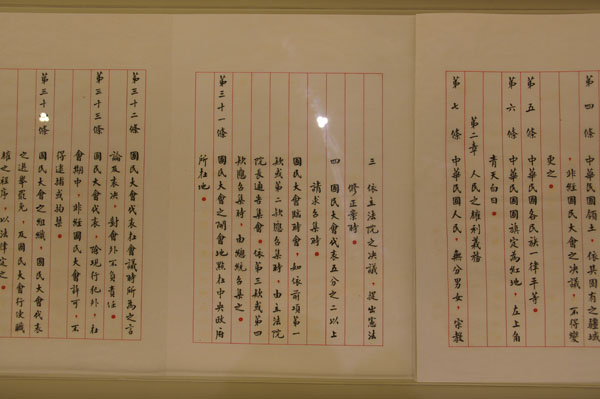 第四條　中華民國領土，依其固有之疆域
，非經國民大會之決議，不得變
更之。
第五條　中華民國各民族一律平等。
第六條　中華民國國旗定為紅地，左上角
青天白日。
第二章　人民之權利義務
第七條　中華民國人民，無分男女，宗教
三　依立法院之決議，提出憲法
修正案時。
四　國民大會代表五分之二以上
請求召集時。
國民大會臨時會，如依前項第一
款或第二款應召集時，由立法院
院長通告集會。依第三款或第四
款應召集時，由總統召集之。
第三十一條　國民大會之開會地點在中央政府
所在地。
第三十二條　國民大會代表在會議時所為之言
論及表決，對會外不負責任。
第三十三條　國民大會代表，除現行犯外，在
會期中，非經國民大會許可，不
得逮捕或拘禁。
第三十四條　國民大會之組織，國民大會代表
之選舉罷免，及國民大會行使職
權之程序，以法律定之。